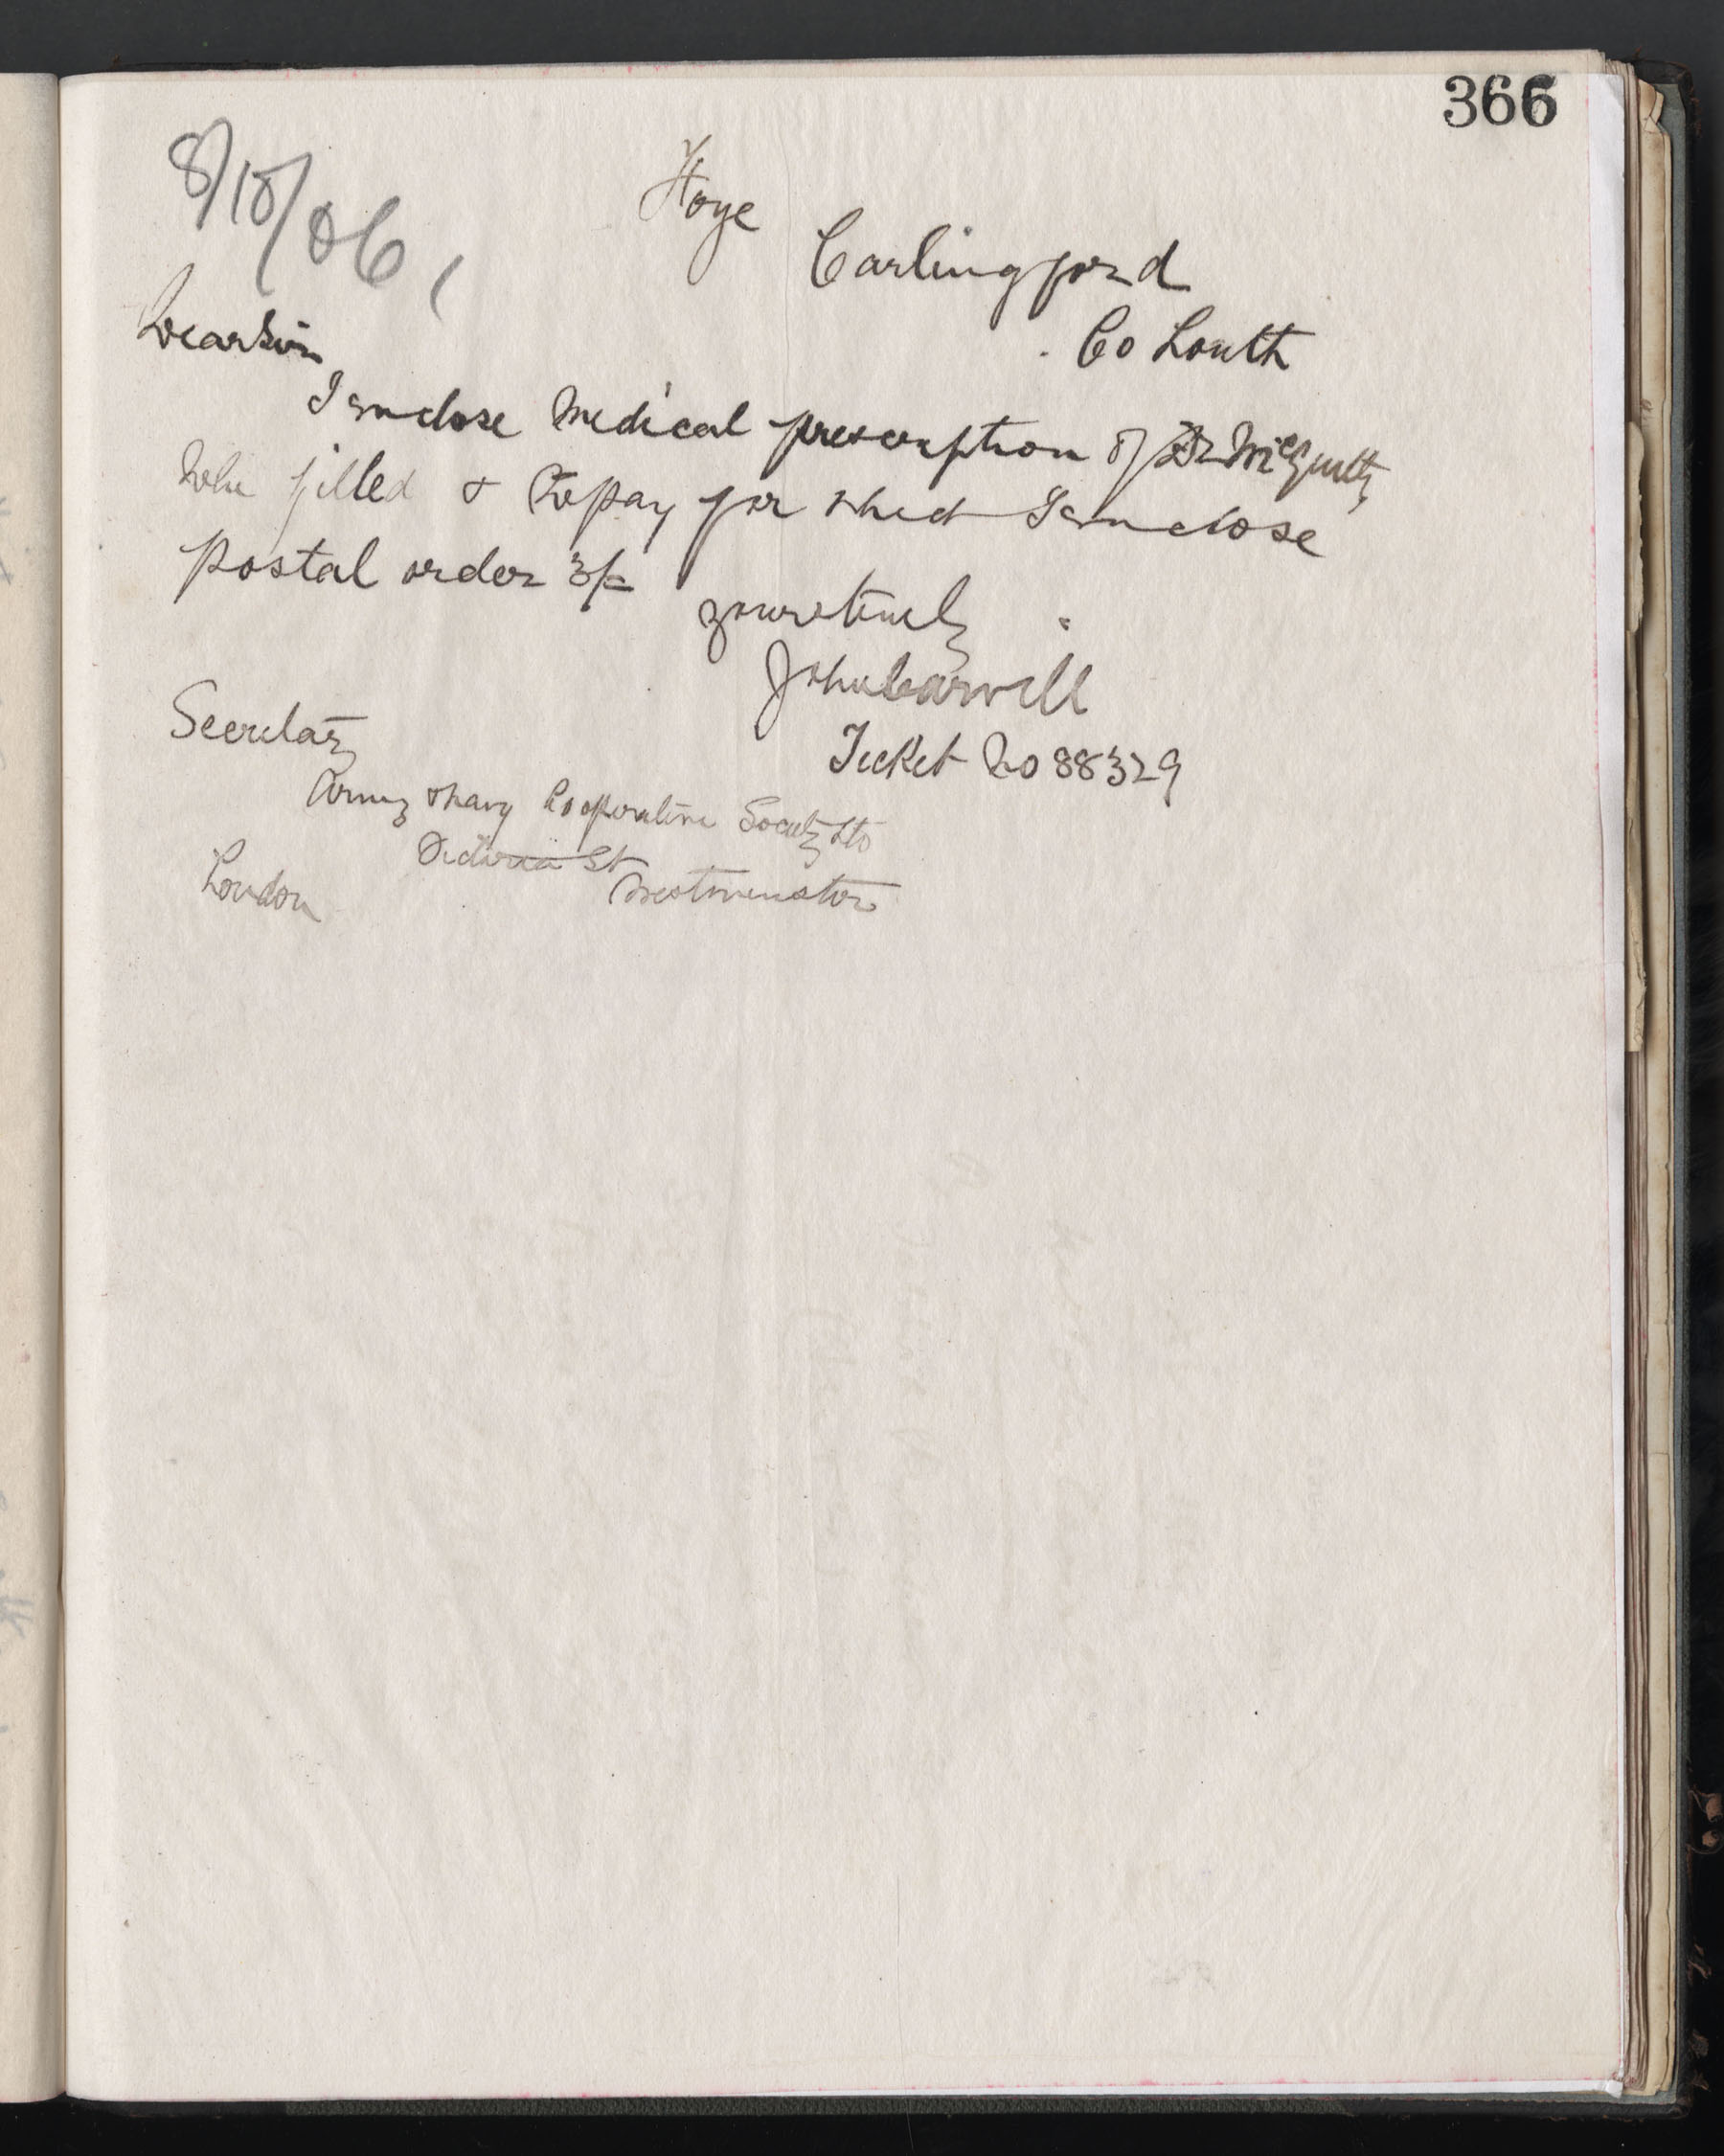 366
8/10/06
Hoye
Carlingford
Co Louth
Dear Sir
I enclose Medical prescription of Dr
filled & to pay for which I enclose
postal order 3/=
yours truly
John Carvill
Ticket No 88329
Secretary
Army & Navy Cooperative Society Ltd
Victoria St
Westminster
London